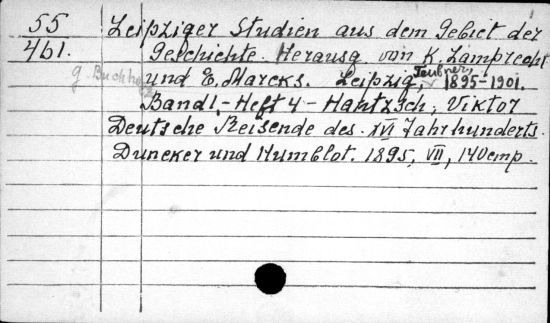 55 Leipziger Studien aus dem Gebiet der
461. Geschichte. Herausg. von K. Lamprecht
und E. Marcks. Leipzig, Teubner, 1895-1901.
Band 1.- Heft 4 - Hantzsch, Viktor
Deutsche Reisende des XVI Jahrhunderts.
Duncker und Humblot. 1895, VII, 140 стр.